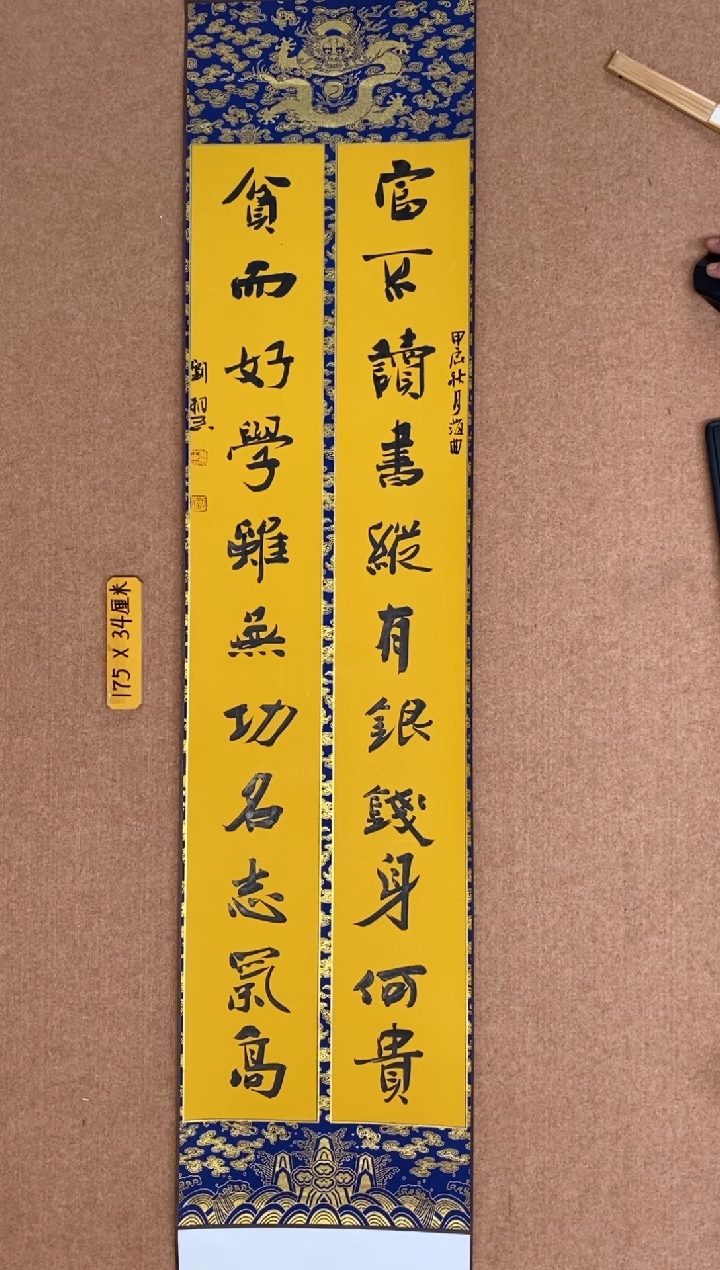 甲辰秋月海曲
富不讀書縱有銀錢身何貴
貧而好學雖無功名志氣高
劉
175 X 34厘米